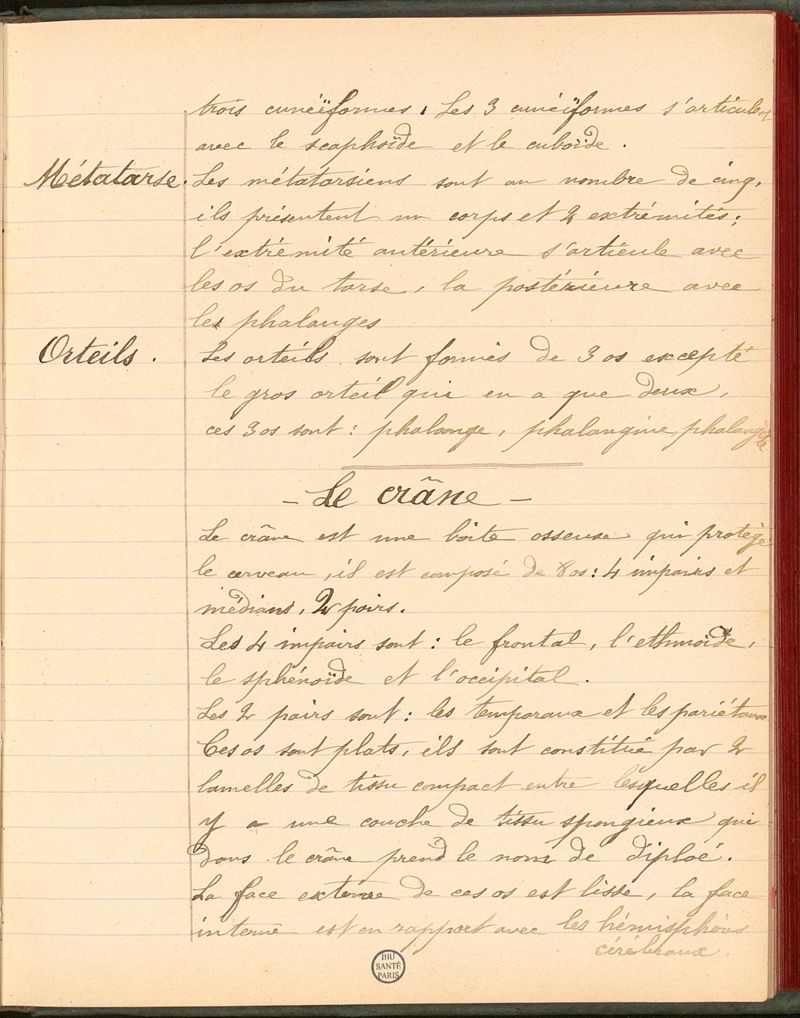 trois cunéiformes. Les 3 cunéiformes s'articulent
avec le scaphoïde et le cuboïde.
Métatarse. Les métatarsiens sont au nombre de cinq,
ils présentent un corps et 2 extrémités;
l'extrémité antérieure s'articule avec
les os du tarse, la postérieure avec
les phalanges
Orteils. Les orteils sont formés de 3 os excepté
le gros orteil qui en a que deux,
ces 3 os sont: phalange, phalangine phalangette
- Le crâne -
Le crâne est une boîte osseuse qui protège
le cerveau, il est composé de 8 os: 4 impairs et
médians, 2 pairs.
Les 4 impairs sont: le frontal, l'ethmoïde,
le sphénoïde et l'occipital.
Les 2 pairs sont: les temporaux et les pariétaux
Ces os sont plats, ils sont constitué par 2
lamelles de tissu compact entre lesquelles il
y a une couche de tissu spongieux qui
dans le crâne prend le nom de diploé.
La face externe de ces os est lisse, la face
interne est en rapport avec les hémisphères
cérébraux.
BIU
SANTÉ
PARIS